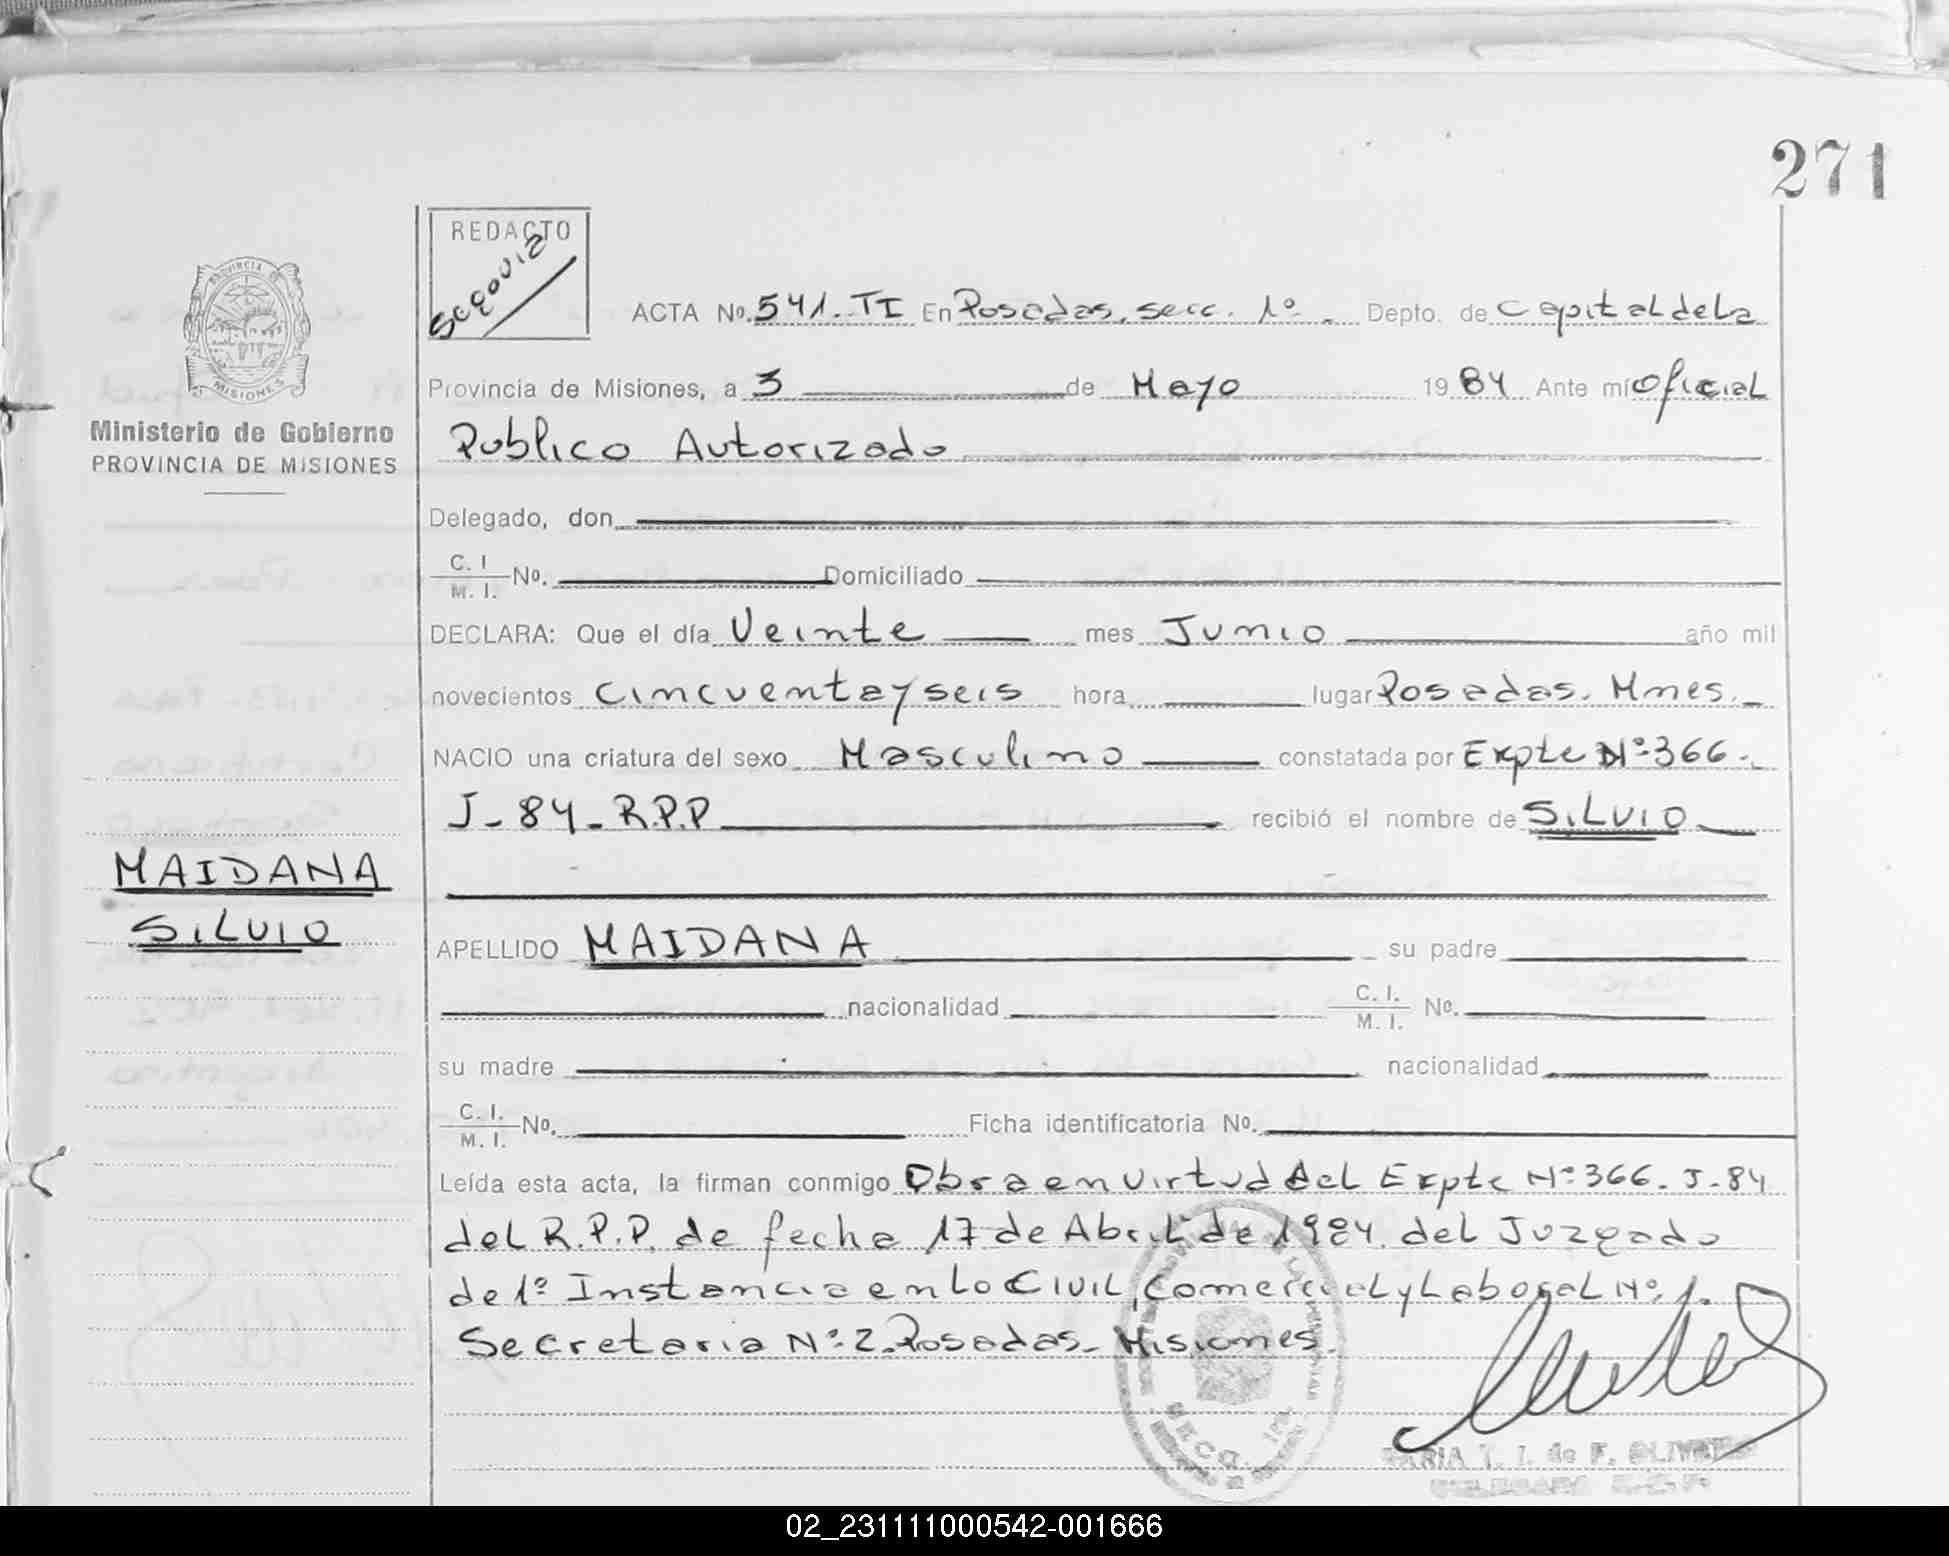 271
REDACTO
Segovia
PROVINCIA DE
MISIONES
Ministerio de Gobierno
PROVINCIA DE MISIONES
ACTA Nº. 541. TI En Posadas, secc. 1º. Depto. de Capital de la
Provincia de Misiones, a 3 de Mayo 1984 Ante mí Oficial
Publico Autorizado
Delegado, don
C. I. M. I. Nº. Domiciliado
DECLARA: Que el día Veinte mes Junio año mil
novecientos cincuenta y seis hora lugar Posadas. Mnes.
NACIO una criatura del sexo Masculino constatada por Expte Nº 366.
J-84-R.P.P recibió el nombre de SILVIO
MAIDANA
SILVIO
APELLIDO MAIDANA su padre
nacionalidad C. I. M. I. Nº.
su madre nacionalidad
C. I. M. I. Nº. Ficha identificatoria Nº.
Leída esta acta, la firman conmigo Obra en virtud del Expte Nº 366. J-84
del R.P.P. de fecha 17 de Abril de 1984. del Juzgado
de 1º Instancia en lo Civil, Comercial y Laboral Nº 1.
Secretaria Nº 2. Posadas. Misiones.
SECC.
MARIA T. I. de F.
02_231111000542-001666